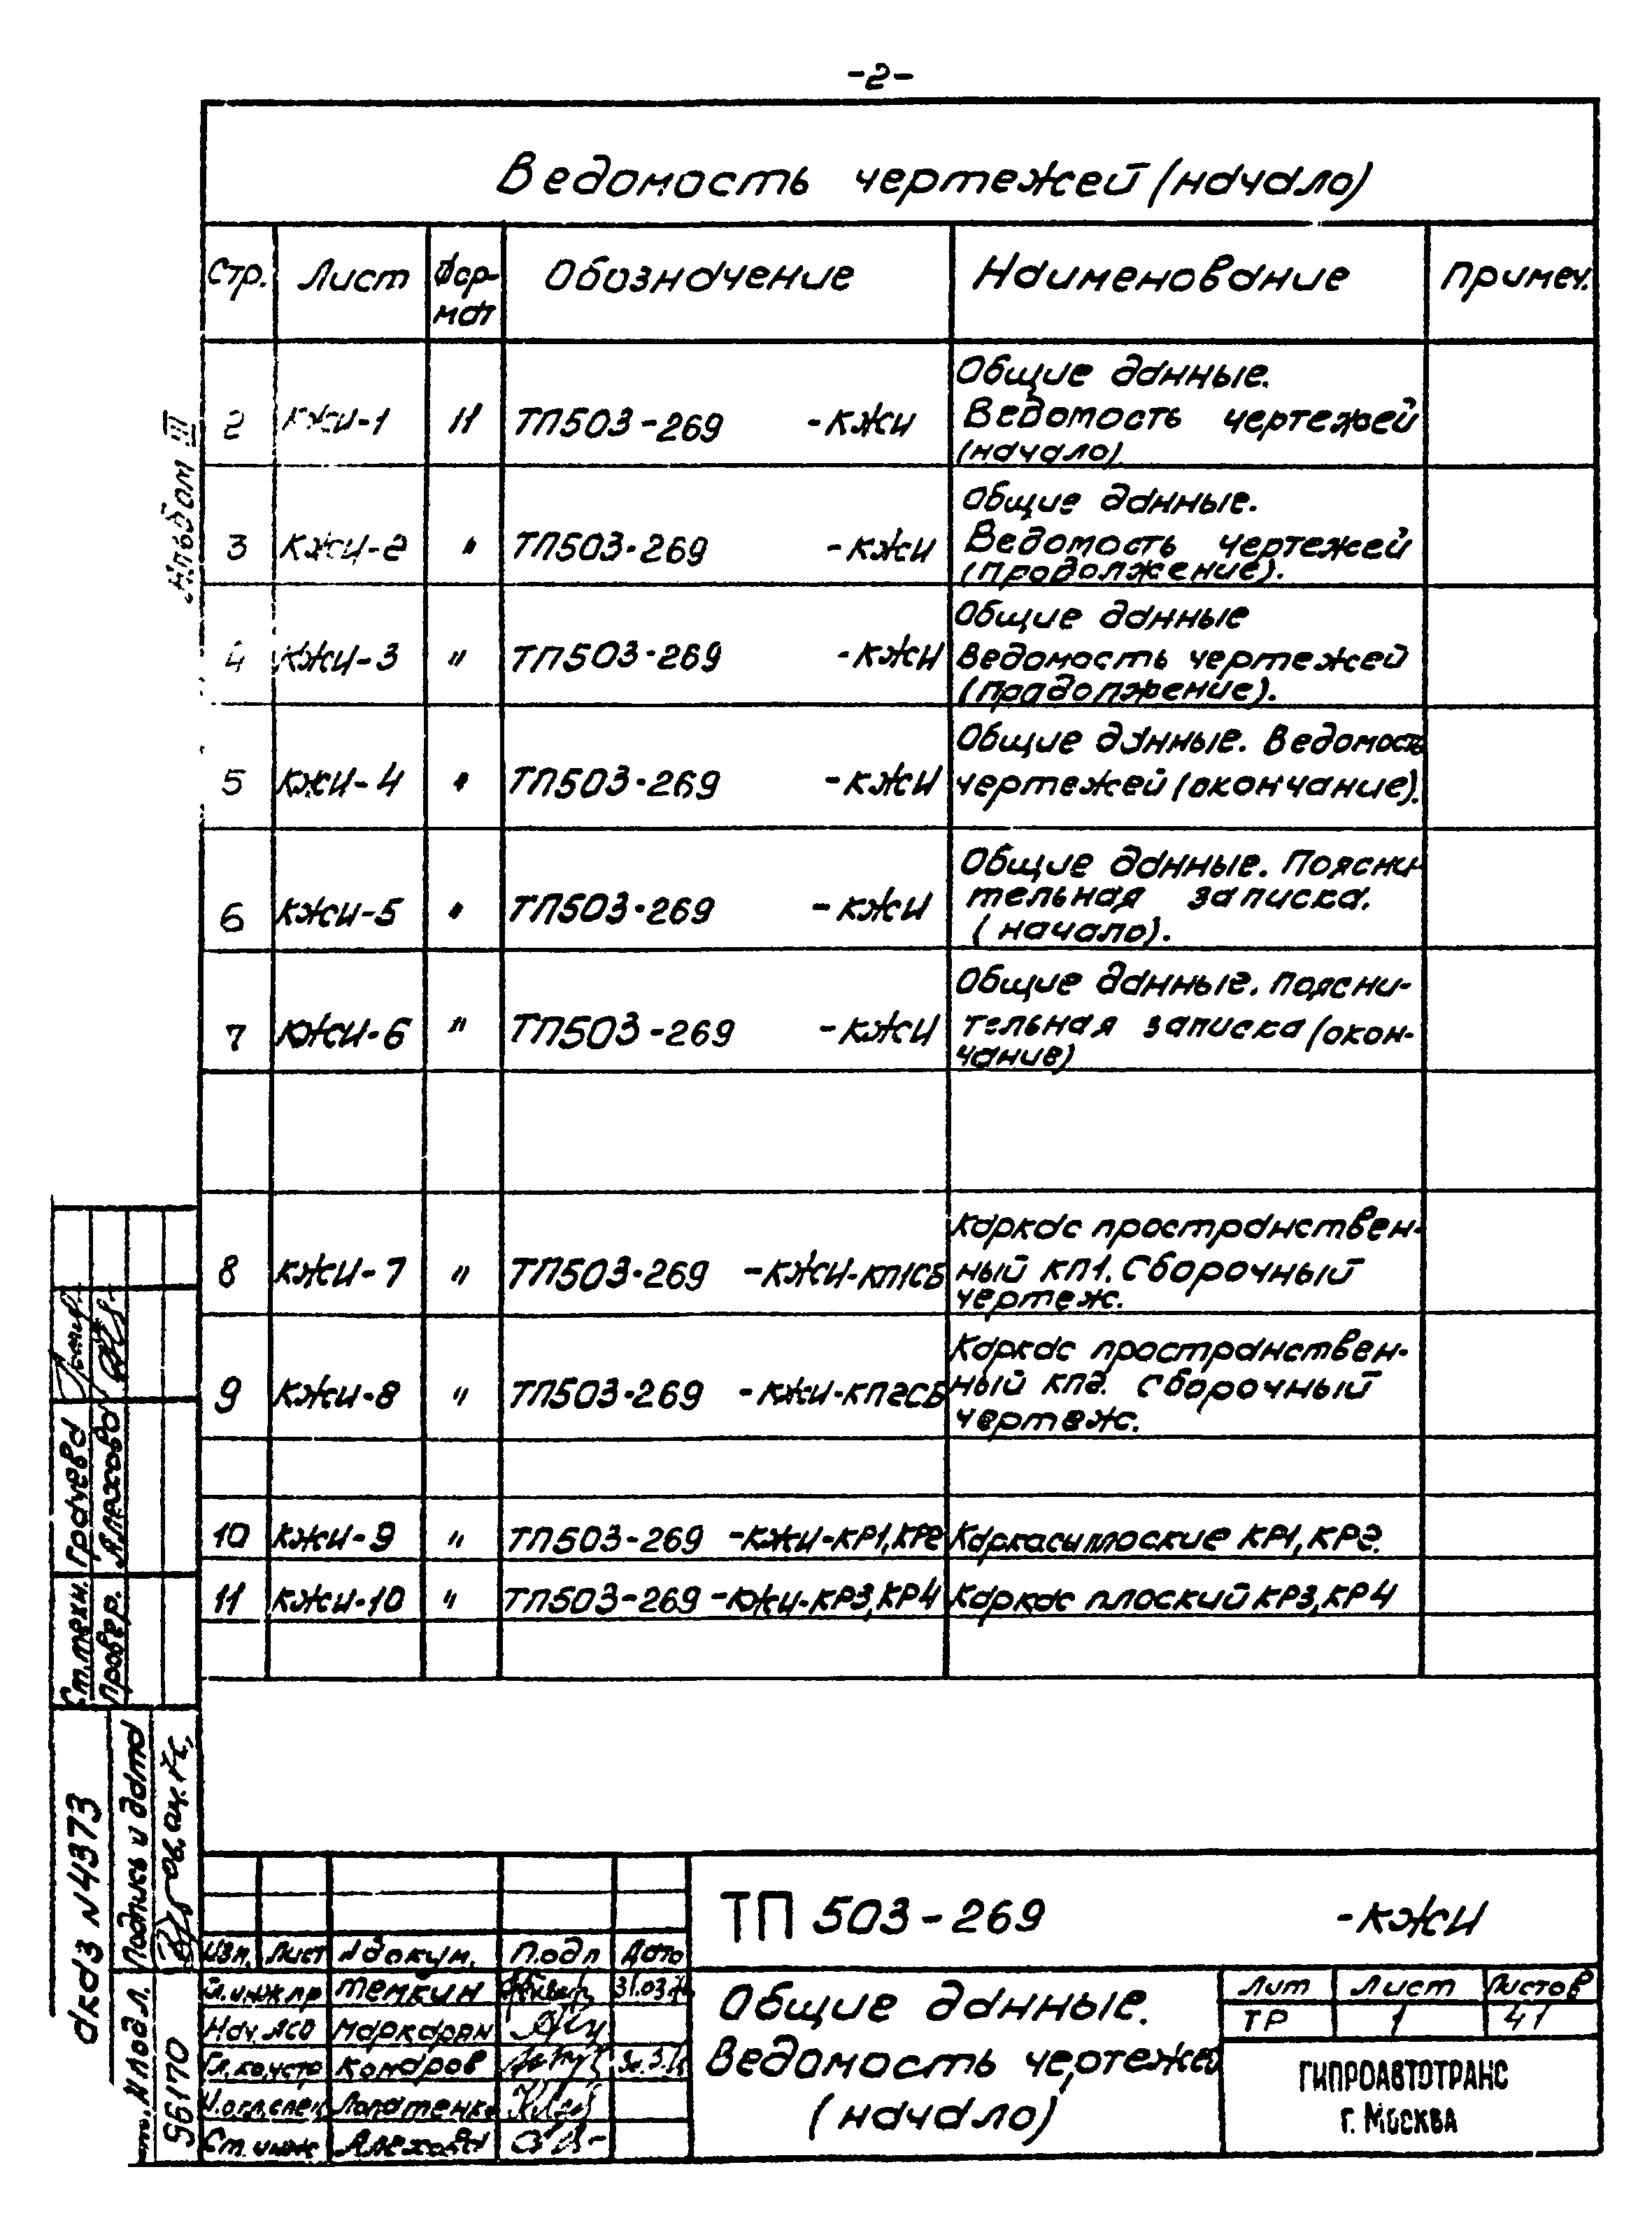 -2-
Ведомость чертежей (начало)
Стр. Лист Фор-мат Обозначение Наименование Примеч.
Общие данные.
2 КЖИ-1 11 ТП503-269 -КЖИ Ведомость чертежей
(начало)
Общие данные.
3 КЖИ-2 " ТП503-269 -КЖИ Ведомость чертежей
(продолжение).
Общие данные
4 КЖИ-3 " ТП503-269 -КЖИ Ведомость чертежей
(продолжение).
Общие данные. Ведомость
5 КЖИ-4 " ТП503-269 -КЖИ чертежей (окончание).
Общие данные. Поясни-
6 КЖИ-5 " ТП503-269 -КЖИ тельная записка.
(начало).
Общие данные. Поясни-
7 КЖИ-6 " ТП503-269 -КЖИ тельная записка (окон-
чание)
Каркас пространствен-
8 КЖИ-7 " ТП503-269 -КЖИ-КП1СБ ный КП1. Сборочный
чертеж.
Каркас пространствен-
9 КЖИ-8 " ТП503-269 -КЖИ-КП2СБ ный КП2. Сборочный
чертеж.
10 КЖИ-9 " ТП503-269 -КЖИ-КР1,КР2 Каркасы плоские КР1, КР2.
11 КЖИ-10 " ТП503-269 -КЖИ-КР3,КР4 Каркас плоский КР3, КР4
Альбом III
Ст.техн. Грачева
Провер. Алехова
Подпись и дата
N4373
96170
Изм. Лист N докум. Подп Дата
Гл.инж.пр Темкин 31.03
Нач. АСО Маркарян
Гл.констр Комаров
Лопатенко
Ст. инж Алехова
ТП 503-269 -КЖИ
Общие данные.
Ведомость чертежей
(начало)
Лит Лист Листов
ТР 1 41
ГИПРОАВТОТРАНС
г. Москва